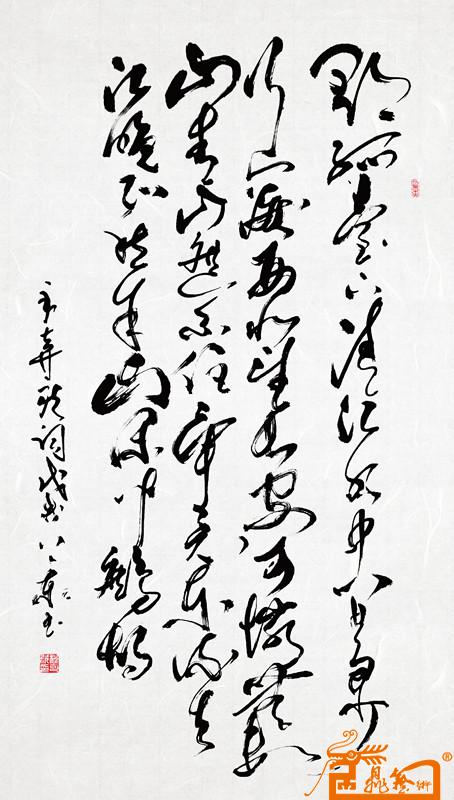 郁孤臺下清江水中间多少
行人淚西北望长安可憐無數
山青山遮不住畢竟东流去
江晚正愁余山深闻鹧鸪
辛弃疾词戊戌